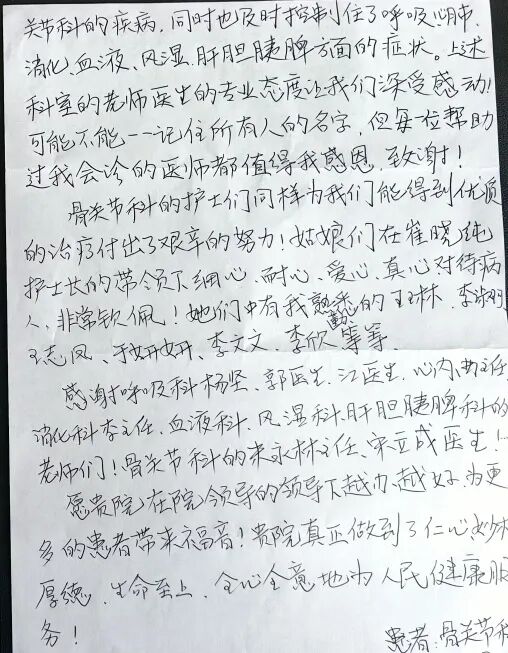 关节科的疾病,同时也及时控制住了呼吸、心肺、
消化、血液、风湿、肝胆胰脾方面的症状。上述
科室的老师医生的专业态度让我们深受感动!
可能不能一一记住所有人的名字,但每一位帮助
过我会诊的医师都值得我感恩、致谢!
骨关节科的护士们同样为我们能得到优质
的治疗付出了艰辛的努力!姑娘们在崔晓纯
护士长的带领下细心、耐心、爱心、真心对待病
人、非常钦佩!她们中有我熟悉的王林、李
王志凤、于妍妍、李文文、李欣 等等、
感谢呼吸科杨坚、郭医生、江医生、心内 主任
消化科李主任、血液科、风湿科、肝胆胰脾科的
老师们!骨关节科的来永林主任、宋立成医生!
愿贵院在院领导的领导下越办越好、为更
多的患者带来福音!贵院真正做到了仁心妙术
厚德、生命至上、全心全意地为人民健康服
务!
患者:骨关节科